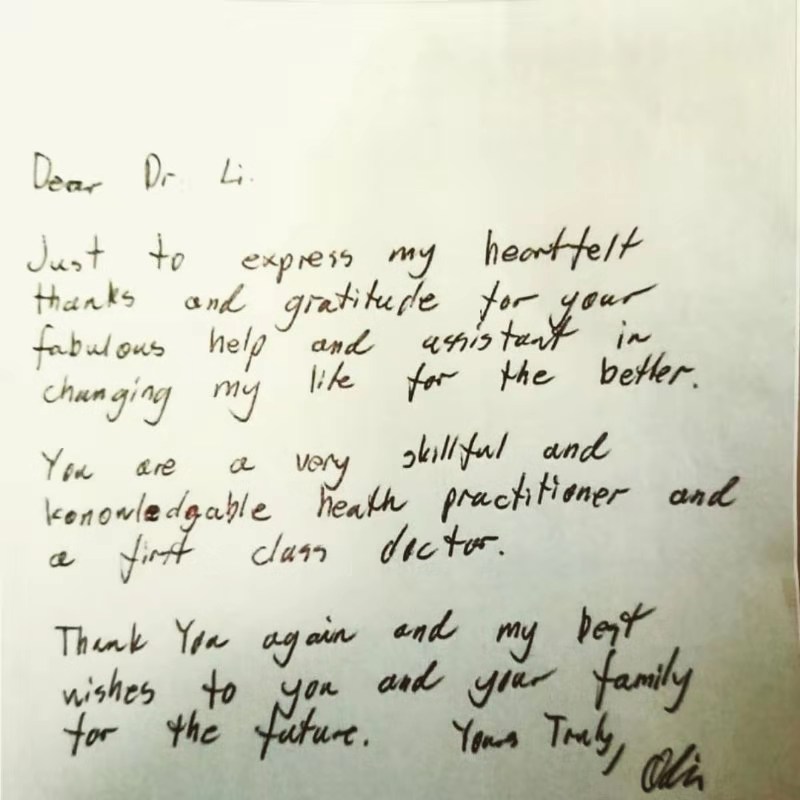 Dear Dr. Li.
Just to express my heartfelt
thanks and gratitude for your
fabulous help and assistant in
changing my life for the better.
You are a very skillful and
konowledgable heath practitioner and
a first class doctor.
Thank You again and my best
wishes to you and your family
for the future. Yours Truly,